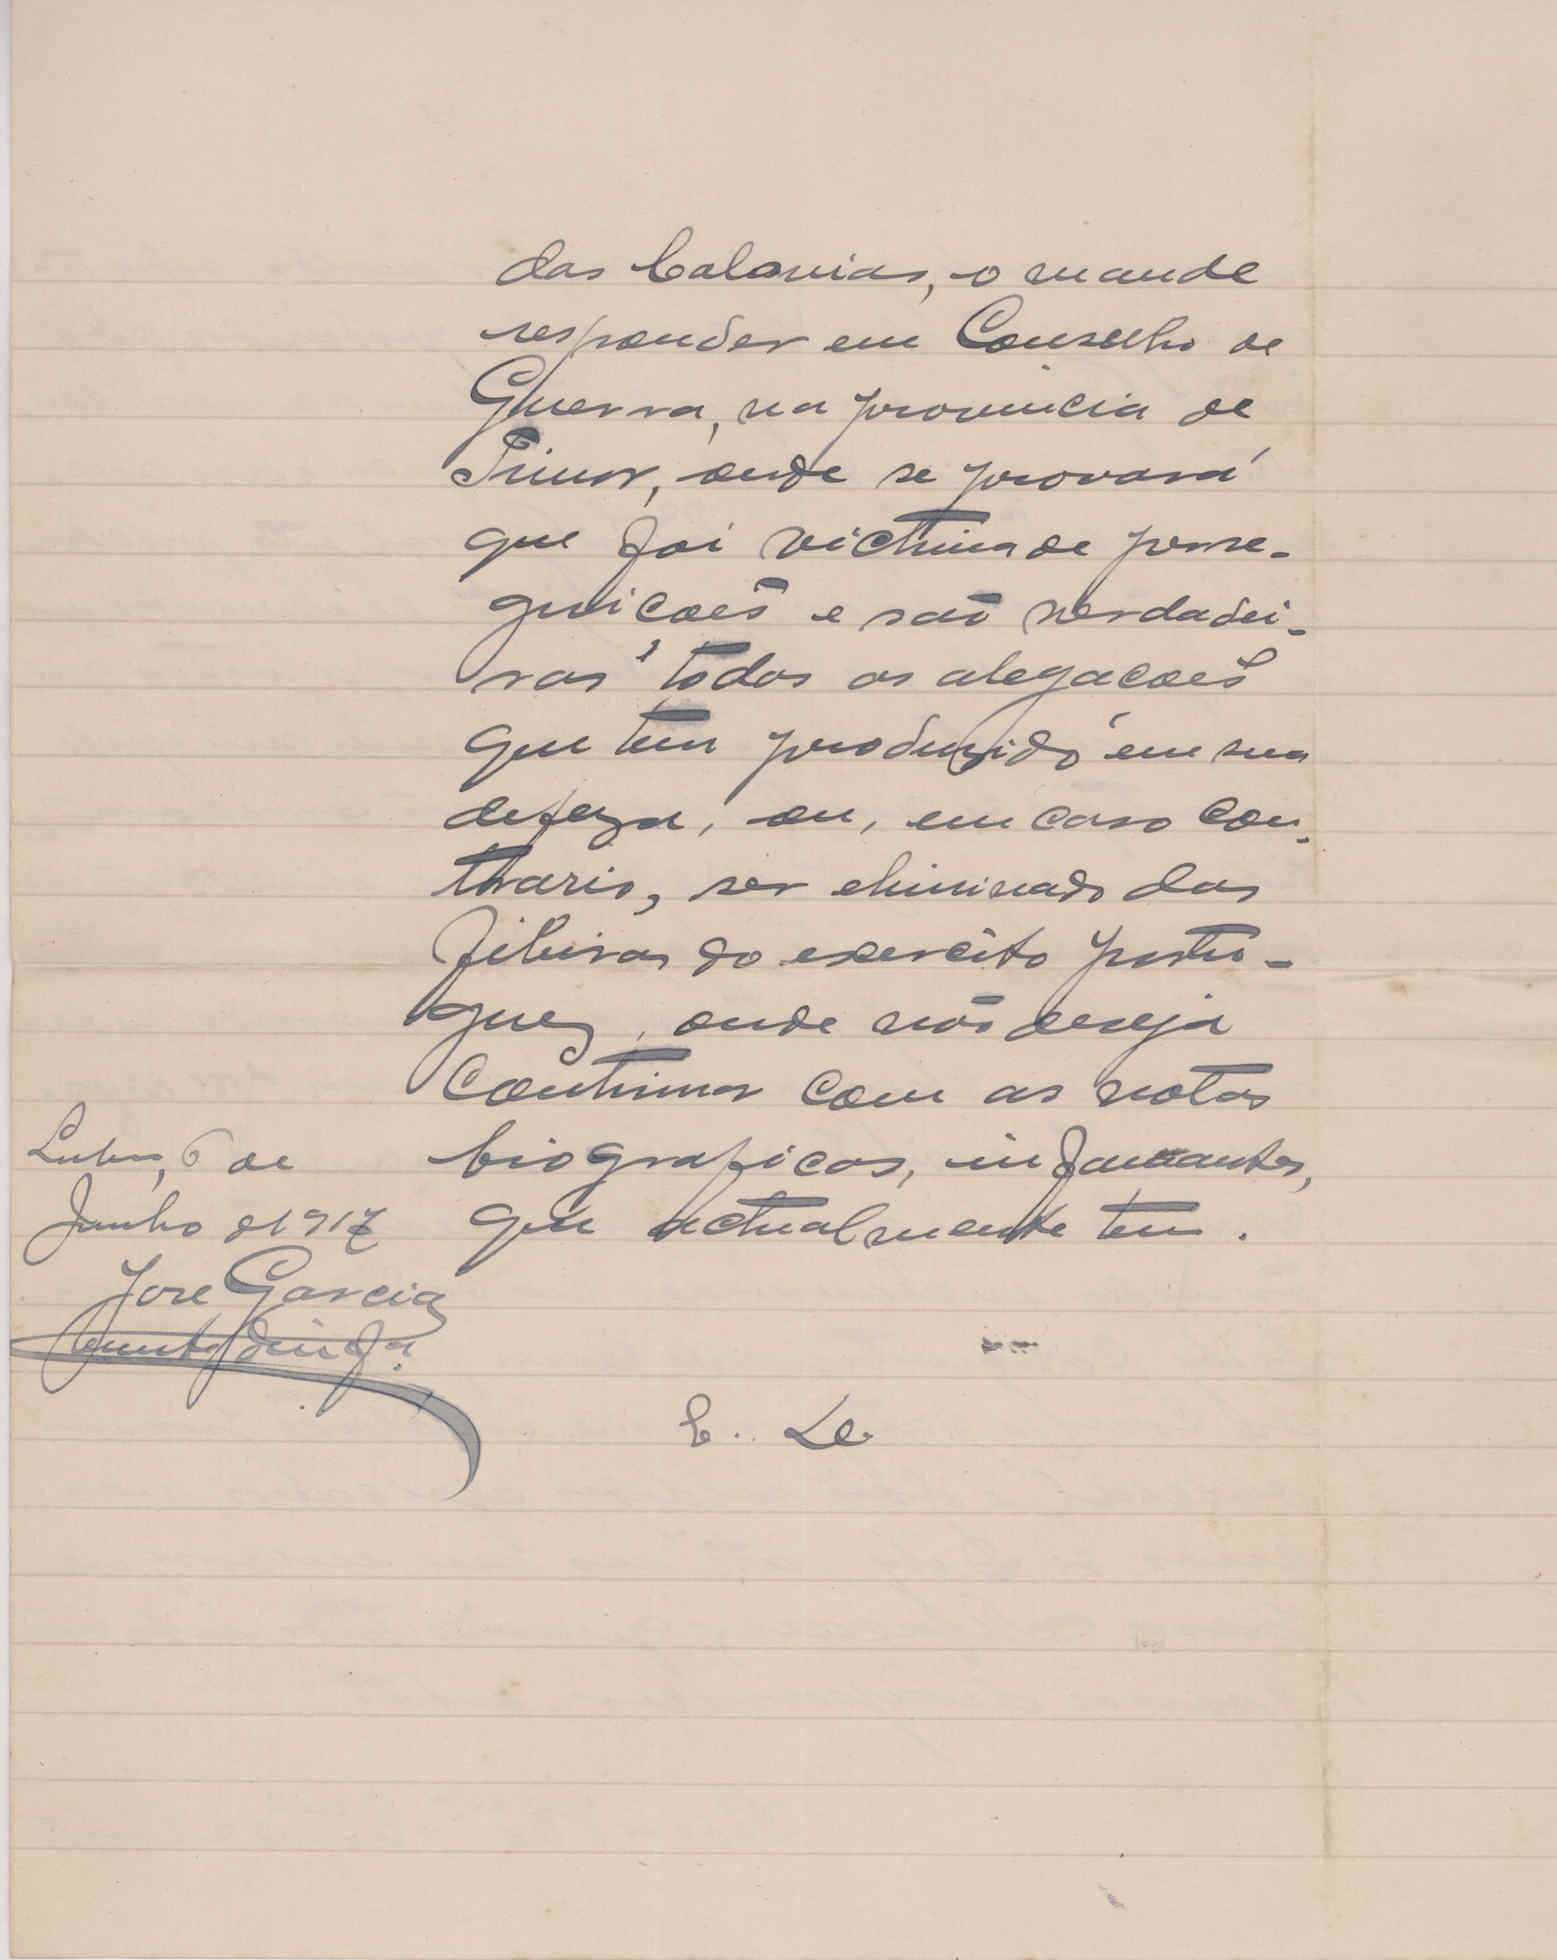 das Colonias, o mande
responder em Conselho de
Guerra, na provincia de
Timor, onde se provará
que foi victima de perse-
guicoẽs e saõ verdadei-
ras todas as alegacoẽs
que tem produzido em sua
defeza, ou, em caso con-
trario, ser eliminado das
fileiras do exercito portu-
guez, onde naõ deseja
continuar com as notas
biograficas, infamantes,
que actualmente tem.
6 de
Junho de 1917
José Garcia
E.